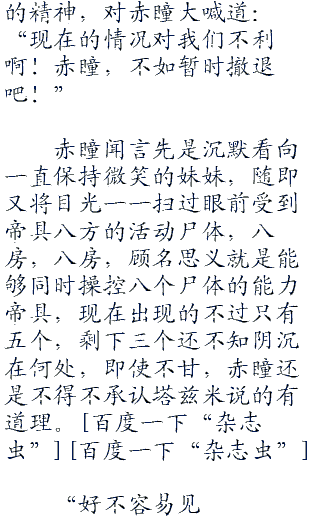 的精神，对赤瞳大喊道：
“现在的情况对我们不利
啊！赤瞳，不如暂时撤退
吧！”
赤瞳闻言先是沉默看向
一直保持微笑的妹妹，随即
又将目光一一扫过眼前受到
帝具八方的活动尸体，八
房，八房，顾名思义就是能
够同时操控八个尸体的能力
帝具，现在出现的不过只有
五个，剩下三个还不知阴沉
在何处，即使不甘，赤瞳还
是不得不承认塔兹米说的有
道理。[百度一下“杂志
虫”][百度一下“杂志虫”]
“好不容易见